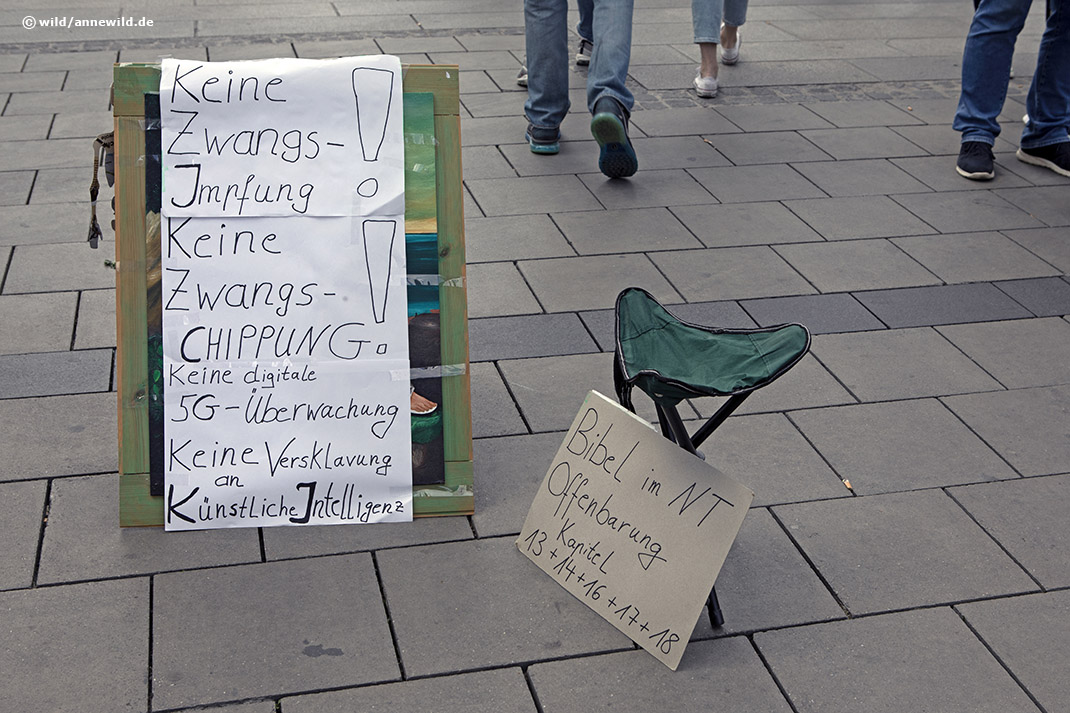 © wild/annewild.de
Keine
Zwangs-
Impfung !
Keine
Zwangs-
CHIPPUNG !
Keine digitale
5G-Überwachung
Keine Versklavung
an
Künstliche Intelligenz
Bibel im NT
Offenbarung
Kapitel
13+14+16+17+18